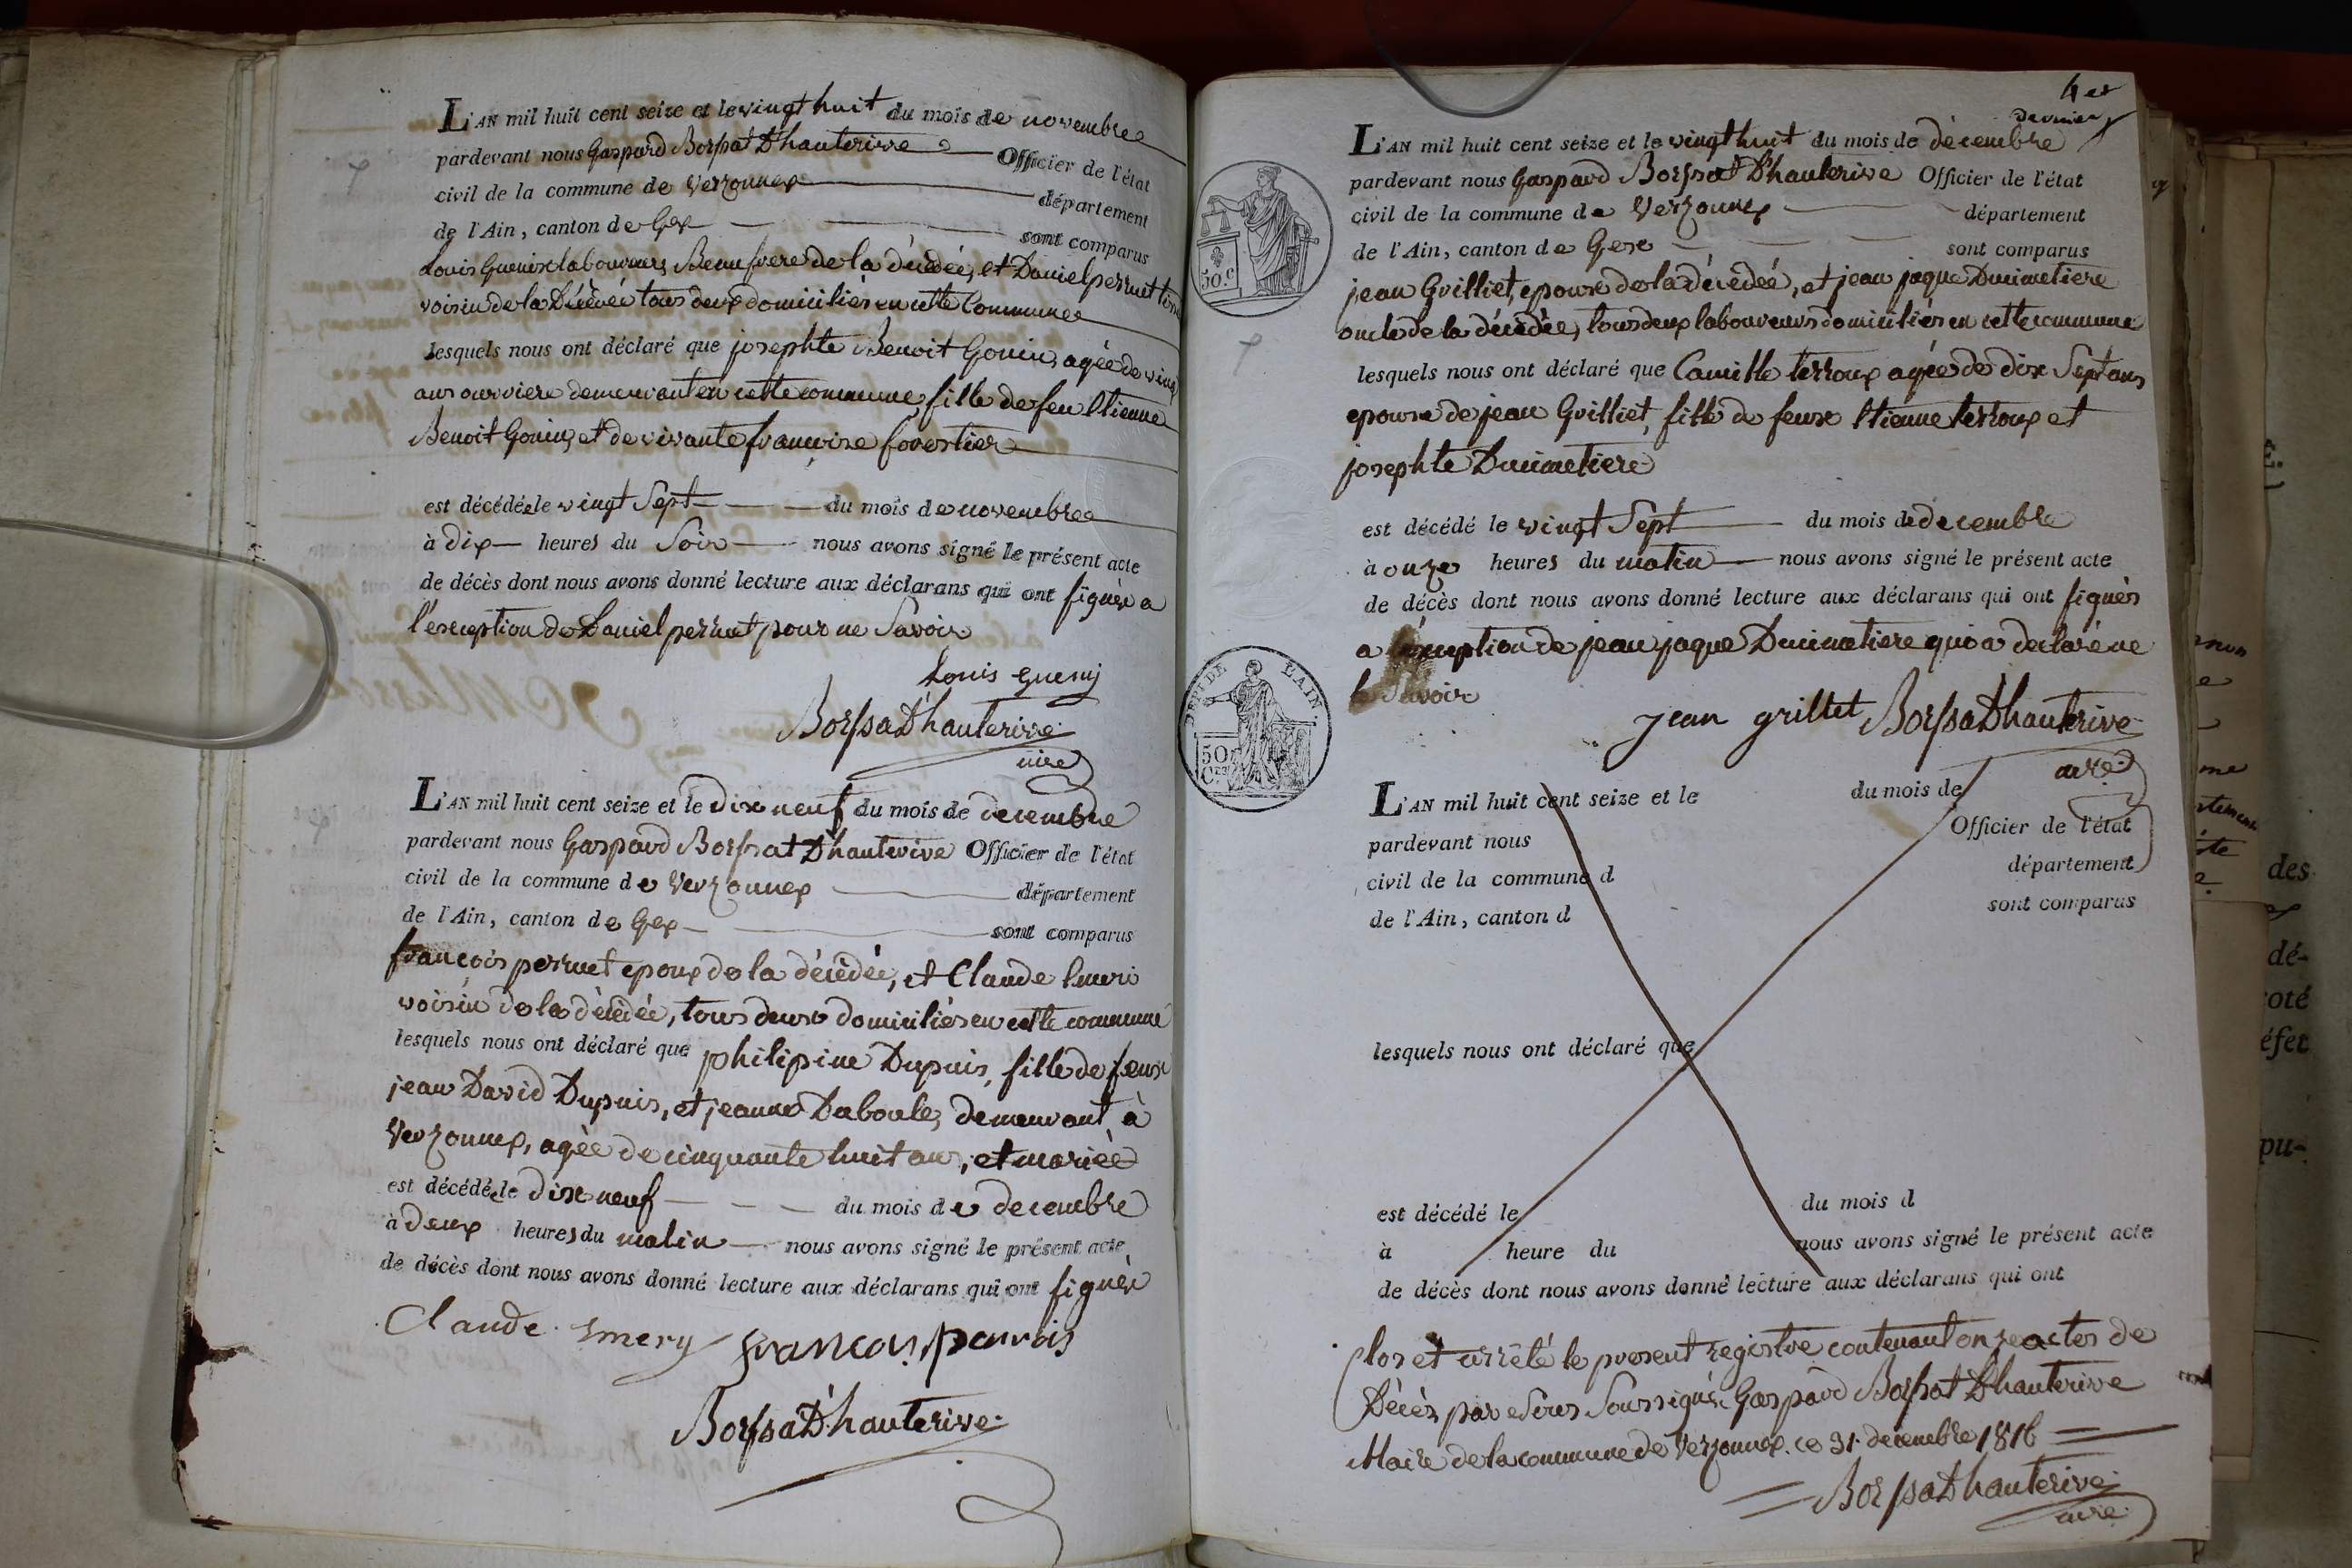 L'AN mil huit cent seize et le vingt huit du mois de novembre
pardevant nous Gaspard Borssat D'hauterive Officier de l'état
civil de la commune de Verzonnex département
de l'Ain, canton de Gex sont comparus
Louis Gueniselaboureur, Beaufrere de la décédée, et Daniel perruet
voisin de la Décédée tous deux domiciliés en cette Commune
lesquels nous ont déclaré que josephte Benoit Gonin, agée de vingt
ans ouvriere demeurant en cette commune, fille de feu Etienne
Benoit Gonin, et de vivante francoise forestier
est décédée le vingt Sept du mois de novembre
à dix heures du Soir nous avons signé le présent acte
de décès dont nous avons donné lecture aux déclarans qui ont signés a
l'exception de Daniel perruet pour ne Savoir
Louis gueniy
BorssaD'hauterive
L'AN mil huit cent seize et le dix neuf du mois de decembre
pardevant nous Gaspard Borssat D'hauterive Officier de l'état
civil de la commune de Verzonnex département
de l'Ain, canton de Gex sont comparus
francois perruet epoux de la décédée, et Claude Emeri
voisin de la décédée, tous deux domiciliés en cette commune
lesquels nous ont déclaré que philipine Dupuis, fille de feux
jean David Dupuis, et jeanne Daboule, demeurant à
Verzonnex, agée de cinquante huit ans, et mariée
est décédée le dix neuf du mois de decembre
à deux heures du matin nous avons signé le présent acte
de décès dont nous avons donné lecture aux déclarans qui ont signés
Claude Emery
BorssaD'hauterive
4 et
dernier
L'AN mil huit cent seize et le vingt huit du mois de décembre
pardevant nous Gaspard Borssat D'hauterive Officier de l'état
civil de la commune de Verzonnex département
de l'Ain, canton de Gex sont comparus
jean Grilliet, epoux de la décédée, et jean jaque Duimetiere
oncle de la décédée, tous deux laboureurs domiciliés en cette commune
lesquels nous ont déclaré que Camille terroux agée de dix Sept ans
epouse de jean Grilliet, fille de feux Etienne terroux et
josephte Duimetiere
est décédé le vingt Sept du mois de decembre
à onze heures du matin nous avons signé le présent acte
de décès dont nous avons donné lecture aux déclarans qui ont signés
a l'exception de jean jaque Duimetiere qui a declaré ne
le Savoir
jean grilliet BorssaD'hauterive
L'AN mil huit cent seize et le du mois de
pardevant nous Officier de l'état
civil de la commune d département
de l'Ain, canton d sont comparus
lesquels nous ont déclaré que
est décédé le du mois d
à heure du nous avons signé le présent acte
de décès dont nous avons donné lecture aux déclarans qui ont
Clos et arrêté le present registre contenant onze actes de
Décès, par Nous Soussigné Gaspard Borssat D'hauterive
Maire de la commune de Verzonnex. ce 31 decembre 1816
BorssaD'hauterive
50.c
DEPT DE L'AIN.
50
Ces